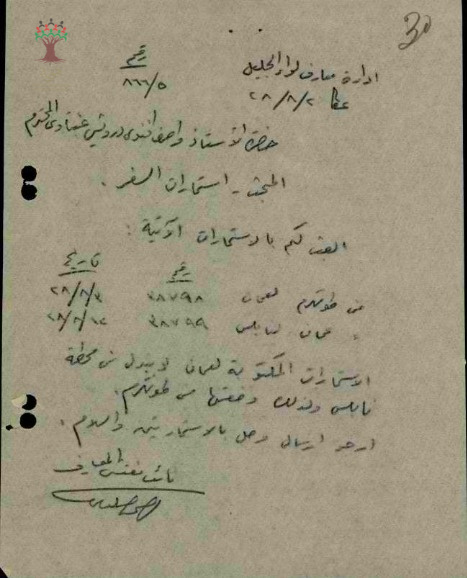 30
ادارة معارف لواء الجليل
عكا ٢٨/٨/٢٠
رقم
٨٦٦/٥
حضرة الأستاذ واصف افندي درويش المحترم
المبحث - استمارات السفر .
ابعث لكم بالاستمارات الآتية :
رقم تاريخ
من طولكرم لعمان ٣٨٧٩٨ ٢٨/٨/٣
" عمان لنابلس ٣٨٧٩٩ ٢٨/٨/١٢
الاستمارات المكتوبة لعمان لا يبدل من محطة
نابلس ولذلك من طولكرم .
ارجو ارسال وصل بالاستمارتين والسلام .
نائب مفتش المعارف